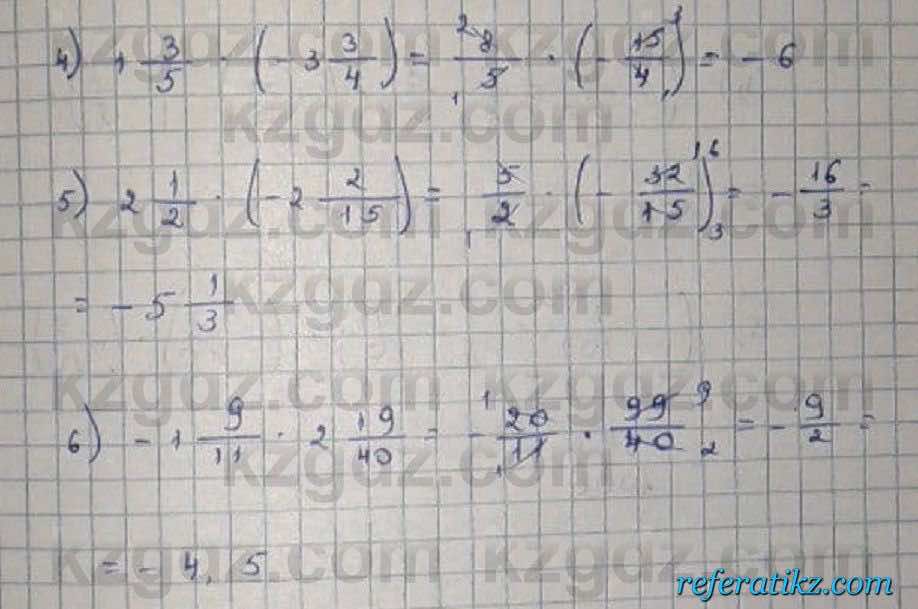 4) 1 3/5 · (- 3 3/4) = ²8/5₁ · (- 15/4)³₁ = - 6
5) 2 1/2 · (- 2 2/15) = ₁5/2 · (- 32/15)¹⁶₃ = - 16/3 =
= - 5 1/3
6) - 1 9/11 · 2 19/40 = - ¹20/11₁ · 99/40 ⁹₂ = - 9/2 =
= - 4,5
kzgdz.com
referatikz.com